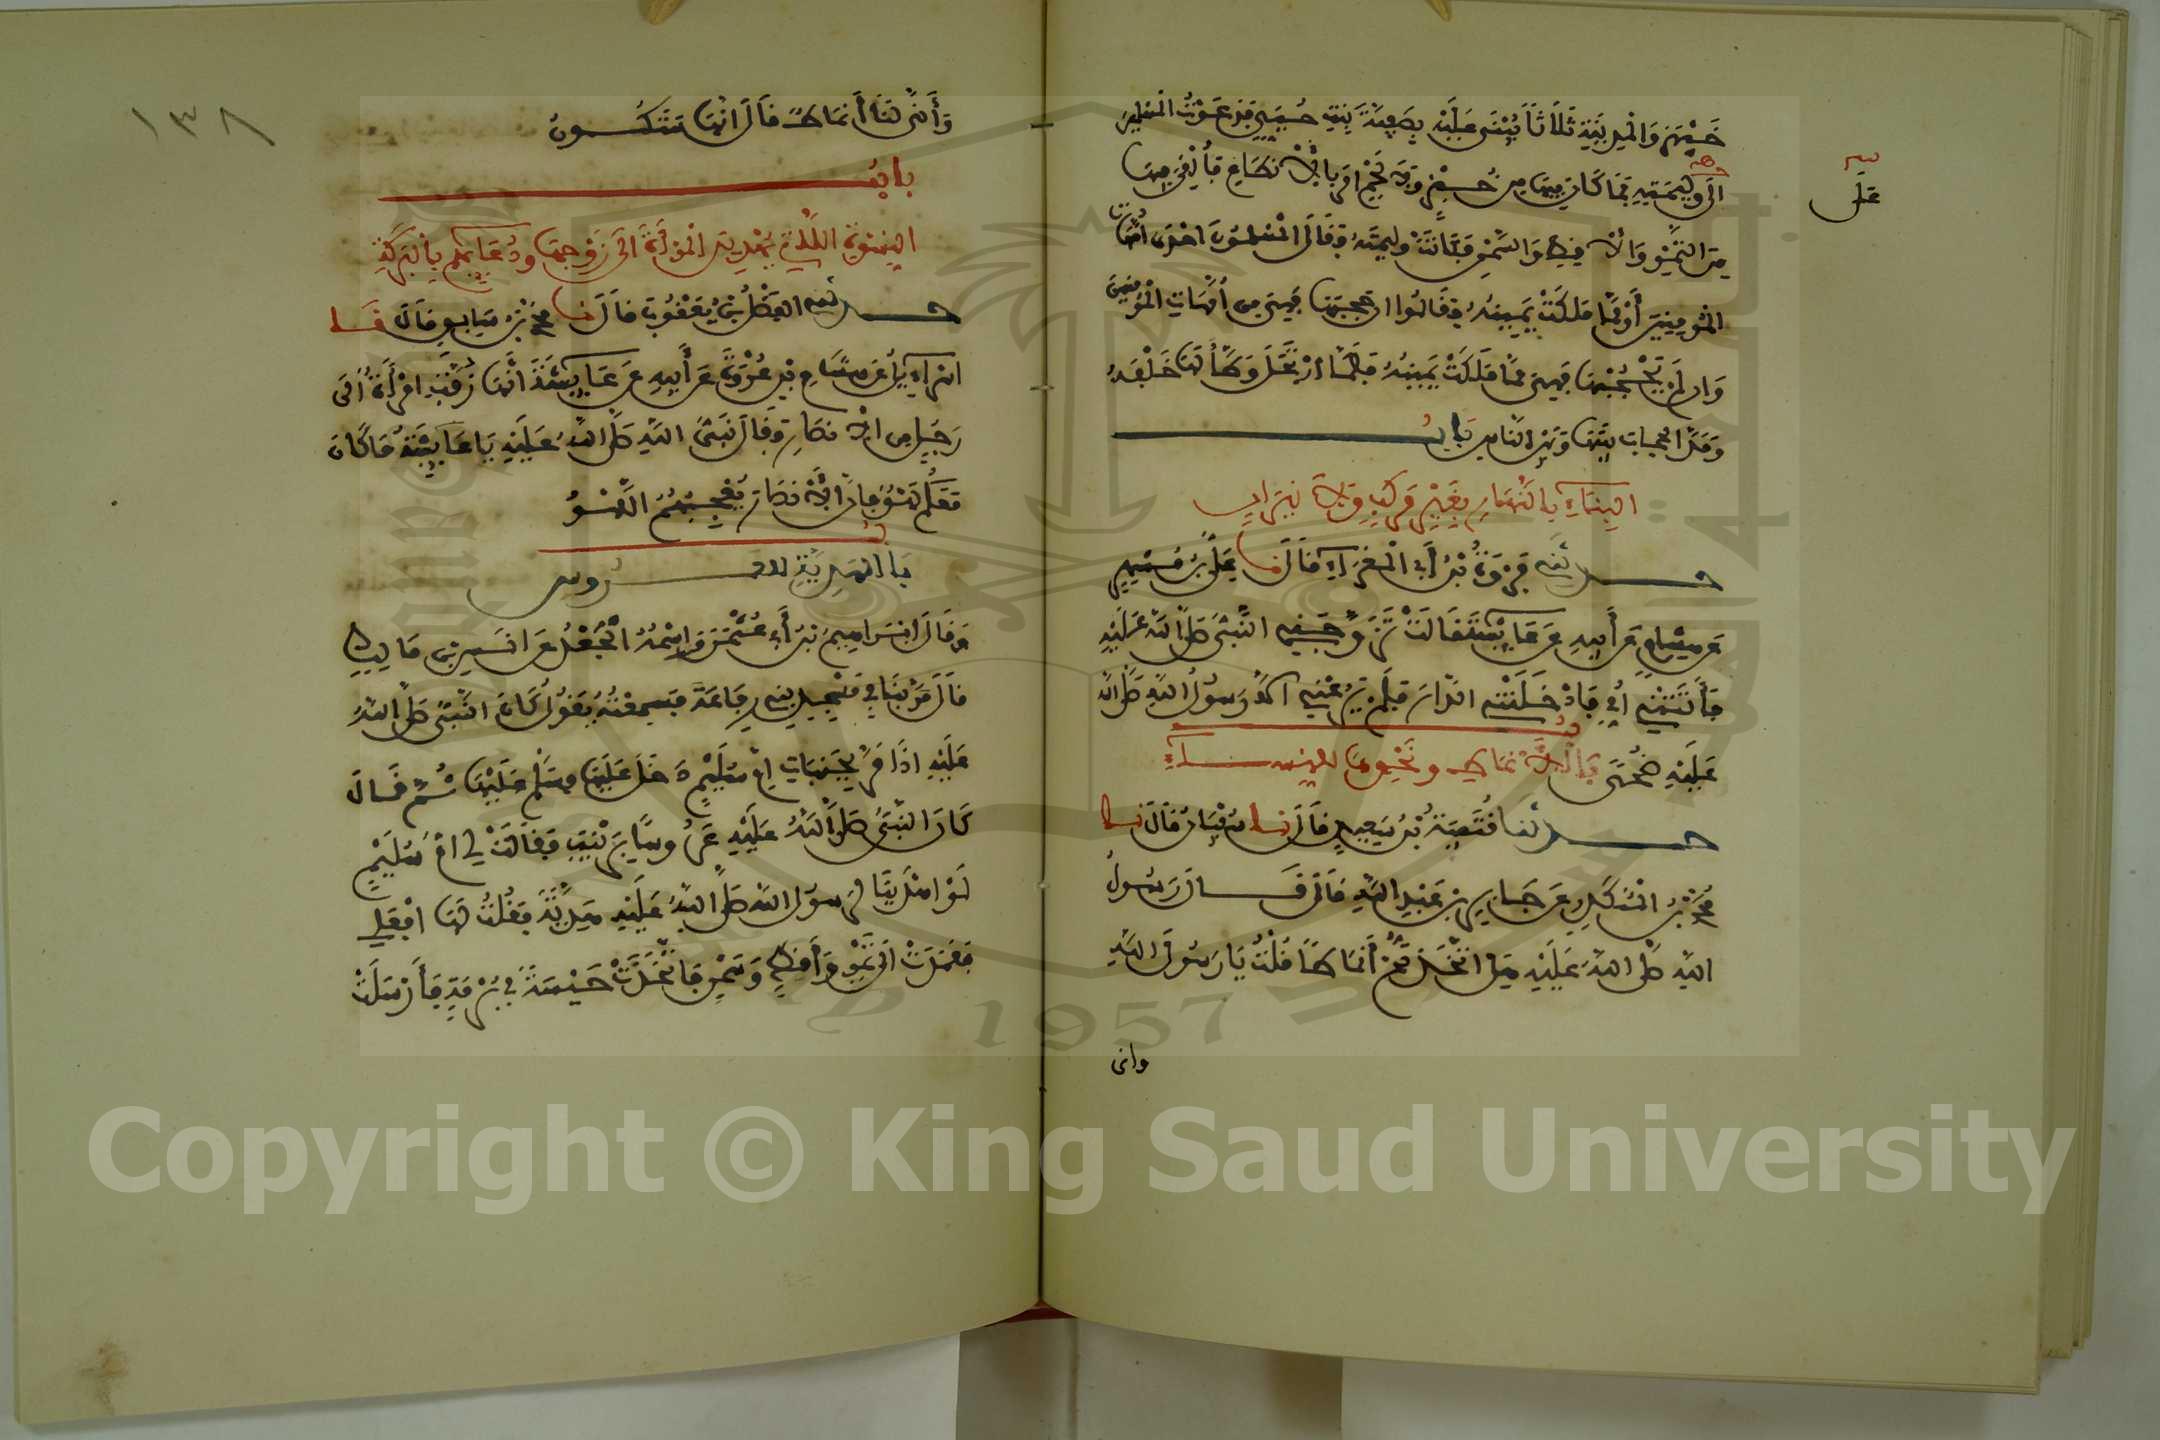 خَيْبَرَ وَالْمَدِينَةِ ثَلَاثًا يُبْنَى عَلَيْهِ بِصَفِيَّةَ بِنْتِ حُيَيٍّ فَدَعَوْتُ الْمُسْلِمِينَ
الَى وَلِيمَتِهِ فَمَا كَانَ فِيهَا مِن خُبْزٍ وَلَا لَحْمٍ امَرَ بِالْأَنْطَاعِ فَأُلْقِيَ فِيهَا
مِنَ التَّمْرِ وَالْأَقِطِ وَالسَّمْنِ فَكَانَتْ وَلِيمَتَهُ فَقَالَ الْمُسْلِمُونَ احْدَى أُمَّهَاتِ
الْمُومِنِينَ أَوْ مِمَّا مَلَكَتْ يَمِينُهُ فَقَالُوا ان حَجَبَهَا فَهِيَ مِن أُمَّهَاتِ الْمُؤْمِنِينَ
وَان لَمْ يَحْجُبْهَا فَهِيَ مِمَّا مَلَكَتْ يَمِينُهُ فَلَمَّا ارْتَحَلَ وَطَّأَ لَهَا خَلْفَهُ
وَمَدَّ الْحِجَابَ بَيْنَهَا وَبَيْنَ النَّاسِ بَابُ
الْبِنَاءِ بِالنَّهَارِ بِغَيْرِ مَرْكَبٍ وَلَا نِيرَانٍ
حدثني فَرْوَةُ بْنُ أَبِي الْمَغْرَاءِ قَالَ نا عَلِيُّ بْنُ مُسْهِرٍ
عَن هِشَامٍ عَن أَبِيهِ عَن عَايِشَةَ قَالَتْ تَزَوَّجَنِي النَّبِيُّ صَلَّى اللهُ عَلَيْهِ
فَأَتَتْنِي أُمِّي فَادْخَلَتْنِي الدَّارَ فَلَمْ يَرُعْنِي الاَّ رَسُولُ اللَّهِ صَلَّى اللهُ
عَلَيْهِ ضُحًى بَابُ الْأَنْمَاطِ وَنَحْوِهَا لِلنِّسَاءِ
حدثنا قُتَيْبَةُ بْنُ سَعِيدٍ قَالَ نا سُفْيَانُ قَالَ نا
مُحَمَّدُ بْنُ الْمُنْكَدِرِ عَن جَابِرِ بْنِ عَبْدِ اللَّهِ قَالَ قَالَ رَسُولُ
اللَّهِ صَلَّى اللهُ عَلَيْهِ هَلِ اتَّخَذْتُمْ أَنْمَاطًا قُلْتُ يَا رَسُولَ اللَّهِ
وانى
على
١٣٨
وَأَنَّى لَنَا أَنْمَاطٌ قَالَ انَّهَا سَتَكُونُ
بَابُ
النِّسْوَةِ اللَّاتِي يُهْدِينَ الْمَرْأَةَ الَى زَوْجِهَا وَدُعَائِهِنَّ بِالْبَرَكَةِ
حدثني الْفَضْلُ بْنُ يَعْقُوبَ قَالَ نا مُحَمَّدُ بْنُ سَابِقٍ قَالَ نا
اسْرَاءِيلُ عَن هِشَامِ بْنِ عُرْوَةَ عَن أَبِيهِ عَن عَايِشَةَ أَنَّهَا زَفَّتِ امْرَأَةً الَى
رَجُلٍ مِن الْأَنْصَارِ فَقَالَ نَبِيُّ اللَّهِ صَلَّى اللهُ عَلَيْهِ يَا عَايِشَةُ مَا كَانَ
مَعَكُمْ لَهْوٌ فَانَّ الْأَنْصَارَ يُعْجِبُهُمُ اللَّهْوُ
بَابُ الْهَدِيَّةِ لِلْعَرُوسِ
وَقَالَ ابْرَاهِيمُ بْنُ أَبِي عُثْمَنَ وَاسْمُهُ الْجَعْدُ عَن انَسِ بْنِ مَالِكٍ
قَالَ مَرَّ بِنَا فِي مَسْجِدِ بَنِي رِفَاعَةَ فَسَمِعْتُهُ يَقُولُ كَانَ النَّبِيُّ صَلَّى اللهُ
عَلَيْهِ اذَا مَرَّ بِجَنَبَاتِ امِّ سُلَيْمٍ دَخَلَ عَلَيْهَا وَسَلَّمَ عَلَيْهَا ثُمَّ قَالَ
كَانَ النَّبِيُّ صَلَّى اللهُ عَلَيْهِ عَرُوسًا بِزَيْنَبَ فَقَالَتْ لِي امُّ سُلَيْمٍ
لَوْ اهْدَيْنَا لِرَسُولِ اللَّهِ صَلَّى اللهُ عَلَيْهِ هَدِيَّةً فَقُلْتُ لَهَا افْعَلِي
فَعَمَدَتْ الَى تَمْرٍ وَأَقِطٍ وَسَمْنٍ فَاتَّخَذَتْ حَيْسَةً فِي بُرْمَةٍ فَأَرْسَلَتْ